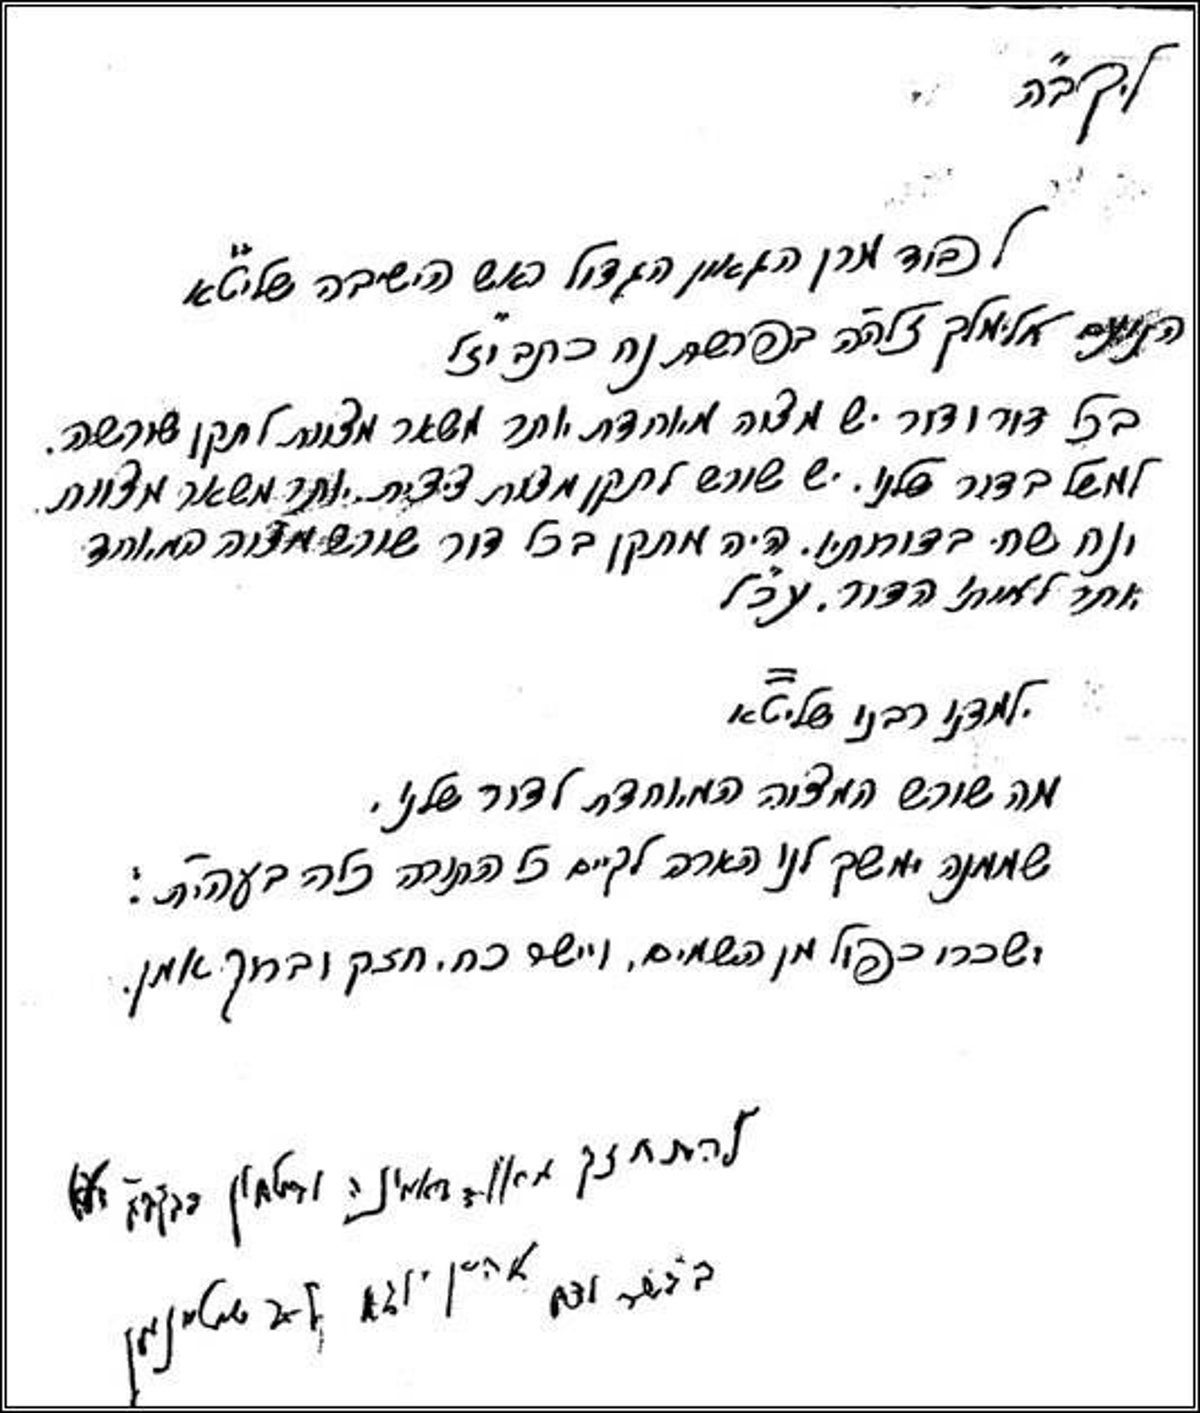 ליקב"ה
לכבוד מרן הגאון הגדול ראש הישיבה שליט"א
הנועם אלימלך זלה"ה בפרשת נח כתב וז"ל
בכל דור ודור יש מצוה מיוחדת יותר משאר מצוות לתקן שורשה.
למשל בדור שלנו. יש שורש לתקן מצות ציצית. יותר משאר מצוות.
ונח שחי בדורותיו. היה מתקן בכל דור שורש מצוה המיוחד
הדור. עכ"ל
ילמדנו רבנו שליט"א
מה שורש המצוה המיוחדת לדור שלנו.
שממנה ימשך לנו הארה לקיים כל התורה כלה בעהי"ת:
ושכרו כפול מן השמים, ויישר כח. חזק וברוך אמן.
להתחזק מאוד באמינה ובטחון בהקב"ה
אהרן יודא ליב שטינמן